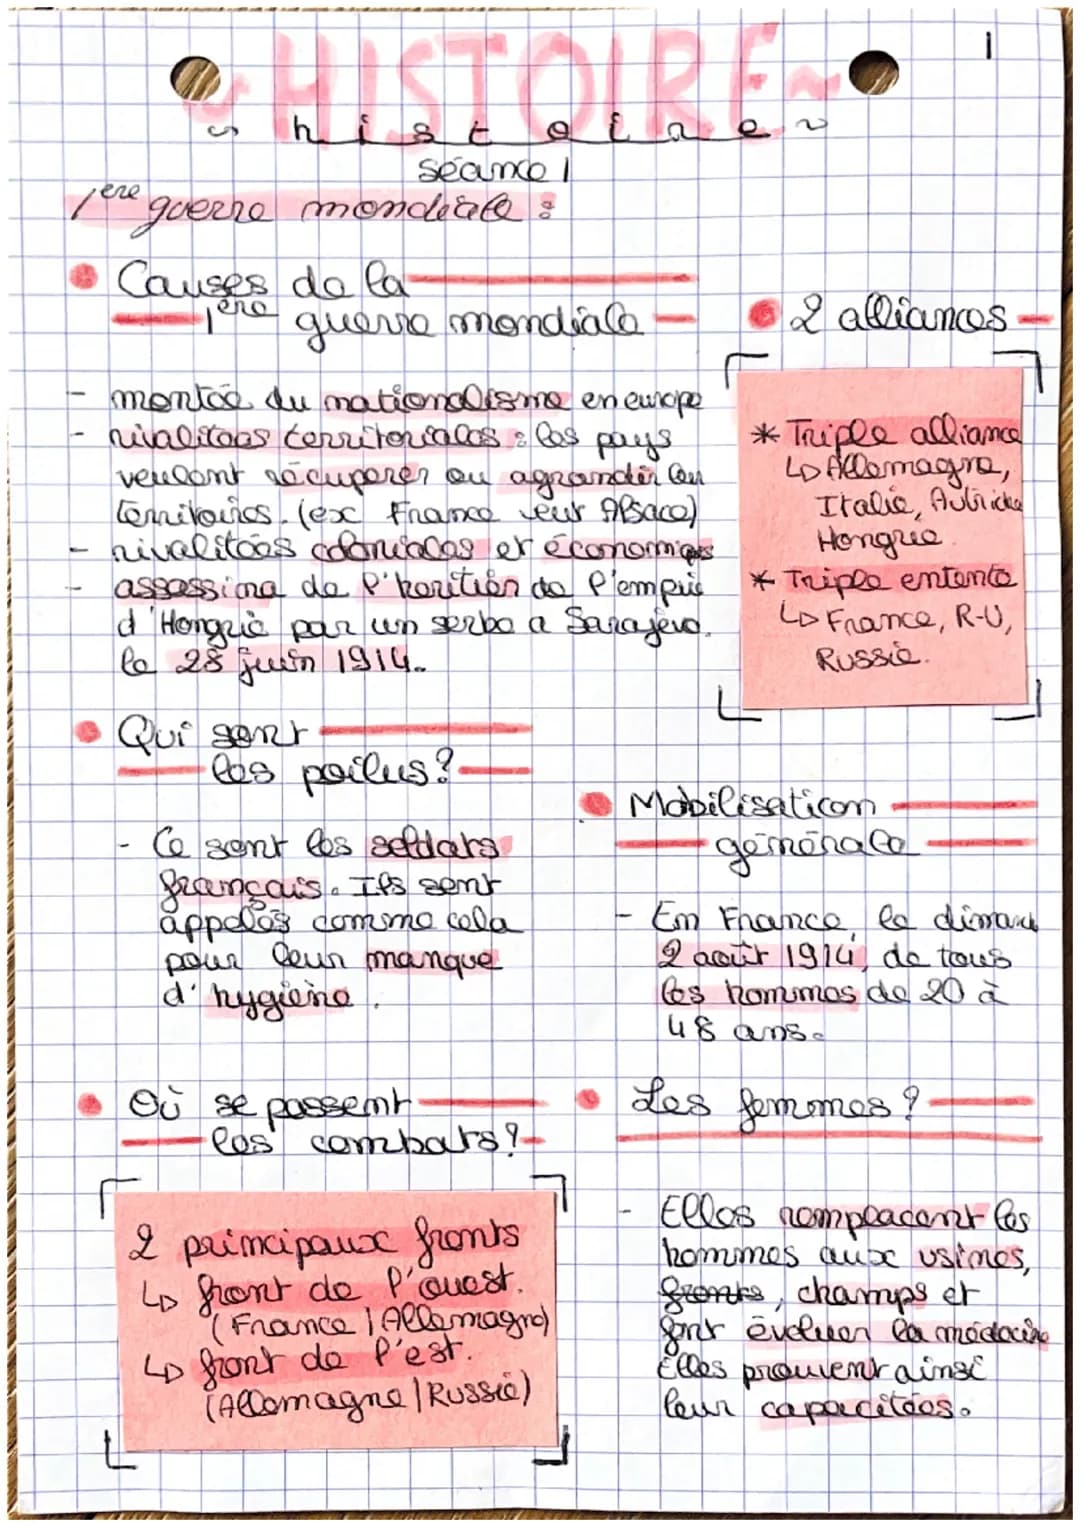 1
~ HISTOIRE ~
~ histoire ~
séance 1
1ère guerre mondiale :
• Causes de la
1ère guerre mondiale
- montée du nationalisme en europe
- rivalitées territoriales : les pays
veulent récuperer ou agrandir leur
territoires. (ex France veut Alsace)
- rivalitées coloniales et économiques
- assassina de l'héritier de l'empire
d'Hongrie par un serbe a Sarajevo.
le 28 juin 1914.
• 2 alliances
* Triple alliance
↳ Allemagne,
Italie, Autriche
Hongrie
* Triple entente
↳ France, R-U,
Russie.
• Qui sont
les poilus ?
- Ce sont les soldats
français. Ils sont
appelés comme cela
pour leur manque
d'hygiène.
• Mobilisation
générale
- En France, le dimanche
2 août 1914, de tous
les hommes de 20 à
48 ans.
• Où se passent
les combats ?
2 principaux fronts
↳ front de l'ouest.
(France / Allemagne)
↳ front de l'est.
(Allemagne / Russie)
• Les femmes ?
- Elles remplacent les
hommes aux usines,
fronts, champs et
font évoluer la médecine
Elles prouvent ainsi
leur capacitées.